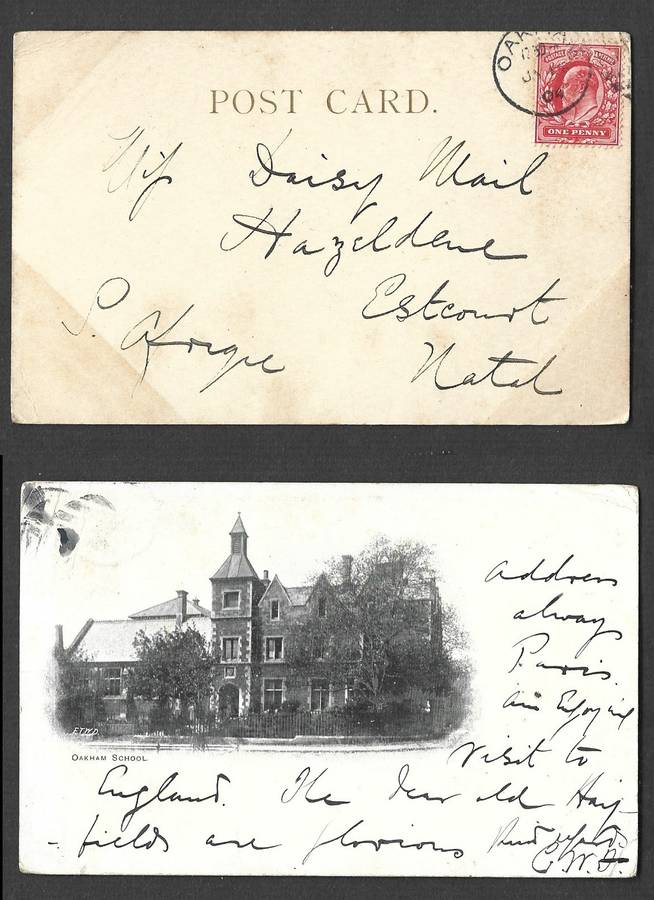 POST CARD.
OAK
04
ONE PENNY
Daisy Mail
Hazeldene
Estcourt
Natal
S. Africa
address
always
Paris.
am Enjoying
visit to
England. The dear old Hay-
-fields are glorious Kind regards.
C.W.
E.T.W.D.
OAKHAM SCHOOL